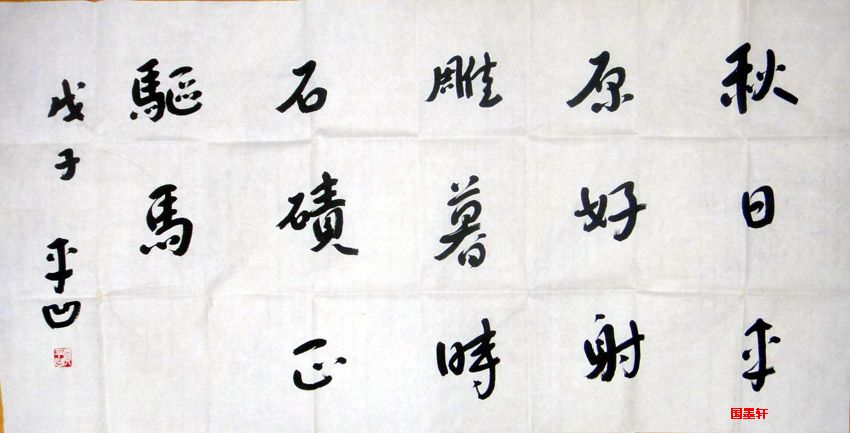 秋日平
原好射
雕暮時
石磧正
驅馬
戊子 平凹
国墨轩